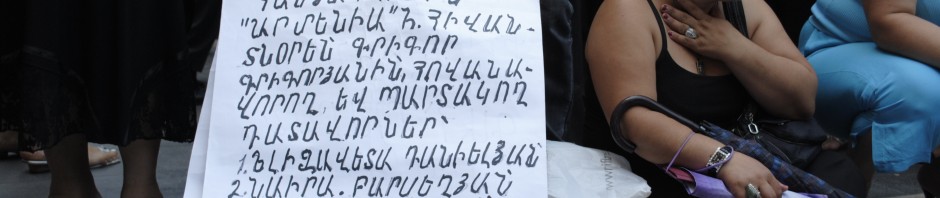 "ԱՐՄԵՆԻԱ" Ի. ՀԻՎԱՆ-
ՏՆՕՐԵՆ ԳՐԻԳՈՐ
ԳՐԻԳՈՐՅԱՆԻՆ, ՀՈՎԱՆԱ-
ՎՈՐՈՂ ԵՎ ՊԱՐՏԱԿՈՂ
ԴԱՏԱՎՈՐՆԵՐ՝
1. ԵԼԻԶԱՎԵՏԱ ԴԱՆԻԵԼՅԱՆ
2. ՆԱԻՐԱ. ԲԱՐՍԵՂՅԱՆ